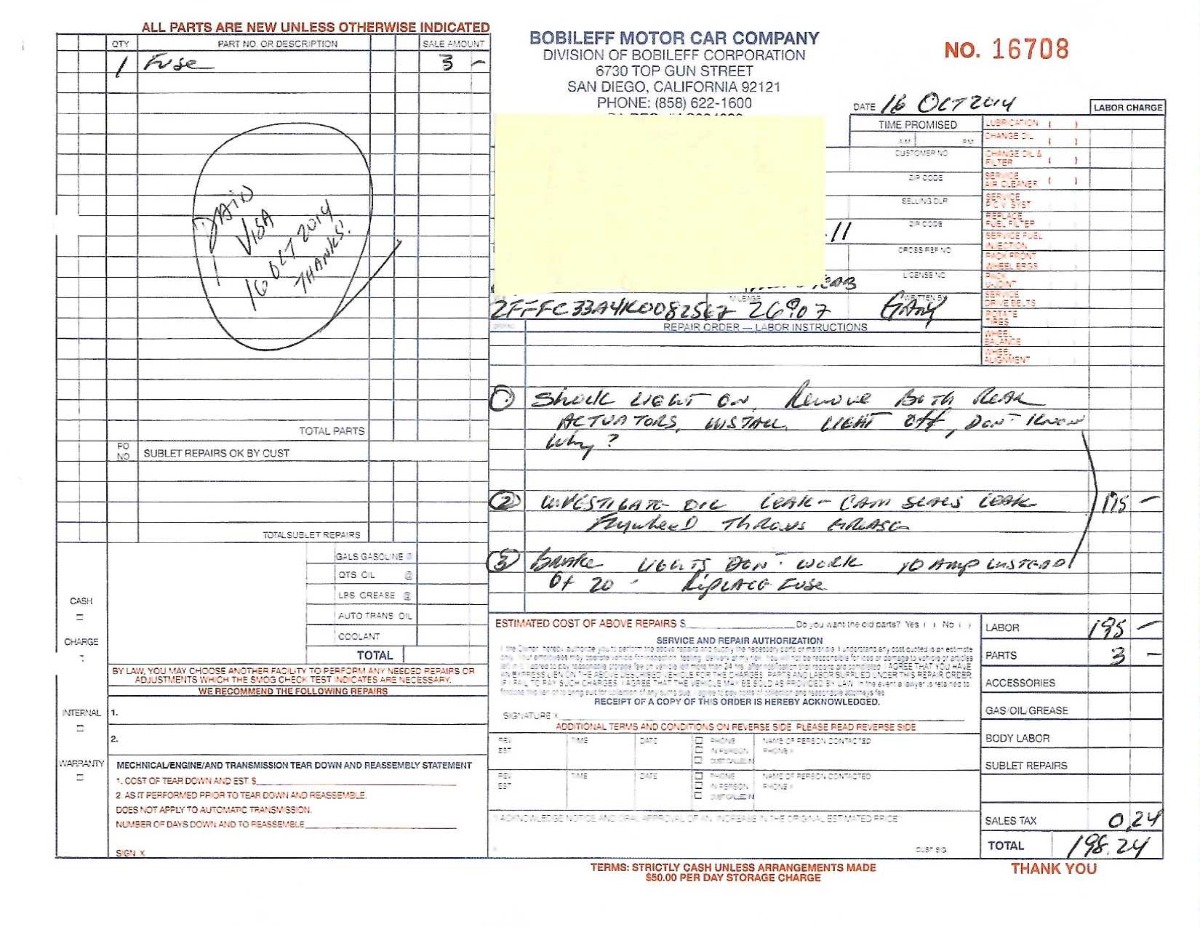 ALL PARTS ARE NEW UNLESS OTHERWISE INDICATED
QTY PART NO. OR DESCRIPTION SALE AMOUNT
1 Fuse 3 -
PAID
VISA
16 OCT 2014
THANKS!
TOTAL PARTS
PO NO SUBLET REPAIRS OK BY CUST
TOTAL SUBLET REPAIRS
GALS GASOLINE @
QTS OIL @
LPS GREASE @
AUTO TRANS OIL
COOLANT
TOTAL
CASH
CHARGE
INTERNAL
WARRANTY
BY LAW, YOU MAY CHOOSE ANOTHER FACILITY TO PERFORM ANY NEEDED REPAIRS OR
ADJUSTMENTS WHICH THE SMOG CHECK TEST INDICATES ARE NECESSARY.
WE RECOMMEND THE FOLLOWING REPAIRS
1.
2.
MECHNICAL/ENGINE/AND TRANSMISSION TEAR DOWN AND REASSEMBLY STATEMENT
1. COST OF TEAR DOWN AND EST $
2. AS IT PERFORMED PRIOR TO TEAR DOWN AND REASSEMBLE.
DOES NOT APPLY TO AUTOMATIC TRANSMISSION.
NUMBER OF DAYS DOWN AND TO REASSEMBLE
SIGN. X
BOBILEFF MOTOR CAR COMPANY
DIVISION OF BOBILEFF CORPORATION
6730 TOP GUN STREET
SAN DIEGO, CALIFORNIA 92121
PHONE: (858) 622-1600
NO. 16708
DATE 16 OCT 2014
TIME PROMISED
A.M. P.M.
CUSTOMER NO
ZIP CODE
SELLING DLR
ZIP CODE
-11
CROSS REF NO
LICENSE NO.
MILEAGE WRITTEN BY
26907 GARY
LABOR CHARGE
LUBRICATION ( )
CHANGE OIL ( )
CHANGE OIL & FILTER ( )
SERVICE AIR CLEANER ( )
REPLACE FUEL FILTER
SERVICE FUEL INJECTION
PACK FRONT WHEEL BRGS
SERVICE DRIVE BELTS
ROTATE TIRES
WHEEL BALANCE
WHEEL ALIGNMENT
REPAIR ORDER — LABOR INSTRUCTIONS
① Shock LIGHT ON, Remove Both REAR
ACTUATORS, INSTALL LIGHT Off, DON'T KNOW
Why?
② INVESTIGATE OIL LEAK - CAM SEALS LEAK 195 -
Flywheel THROWS GREASE
③ BRAKE LIGHTS DON'T WORK 10 AMP INSTEAD
Of 20 - REPLACE FUSE
ESTIMATED COST OF ABOVE REPAIRS $ Do you want the old parts? Yes ( ) No ( )
SERVICE AND REPAIR AUTHORIZATION
RECEIPT OF A COPY OF THIS ORDER IS HEREBY ACKNOWLEDGED.
SIGNATURE X
ADDITIONAL TERMS AND CONDITIONS ON REVERSE SIDE PLEASE READ REVERSE SIDE
REV. EST TIME DATE PHONE IN PERSON CUST CALLED IN NAME OF PERSON CONTACTED PHONE #
REV. EST TIME DATE PHONE IN PERSON CUST CALLED IN NAME OF PERSON CONTACTED PHONE #
I ACKNOWLEDGE NOTICE AND ORAL APPROVAL OF AN INCREASE IN THE ORIGINAL ESTIMATED PRICE
CUST SIG
LABOR 195 -
PARTS 3 -
ACCESSORIES
GAS/OIL/GREASE
BODY LABOR
SUBLET REPAIRS
SALES TAX 0.24
TOTAL 198.24
TERMS: STRICTLY CASH UNLESS ARRANGEMENTS MADE
$50.00 PER DAY STORAGE CHARGE
THANK YOU